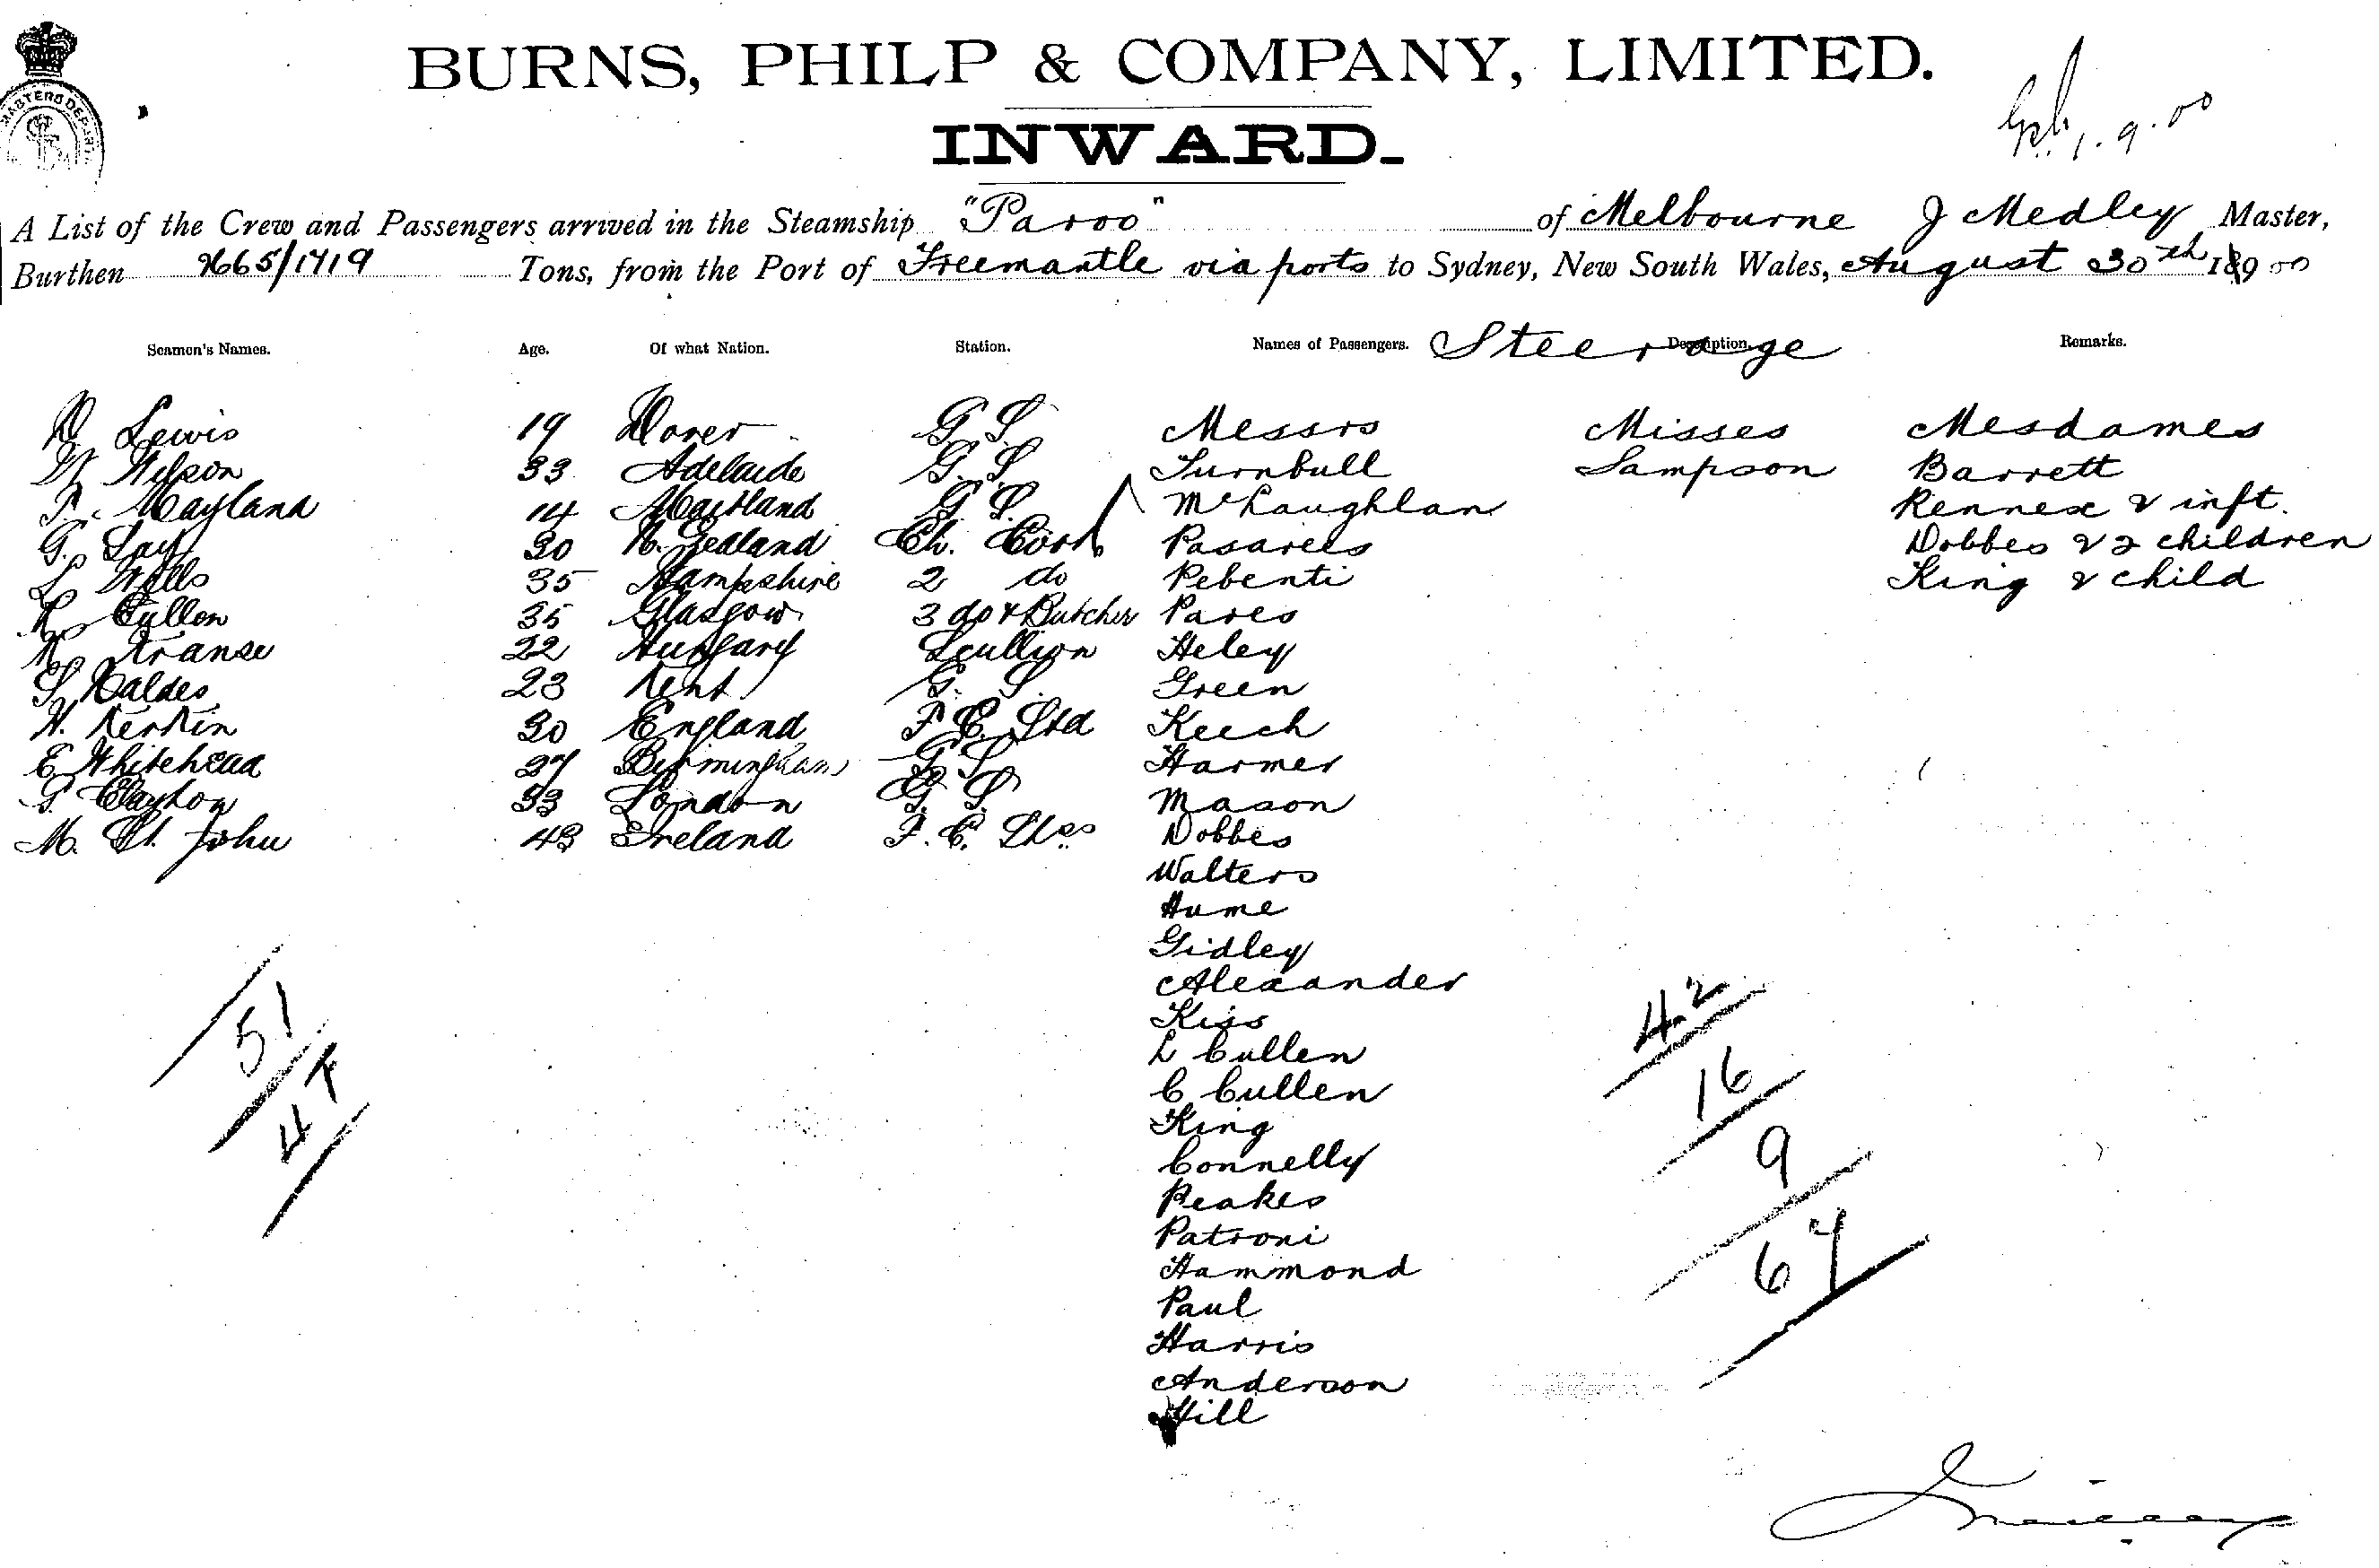 BURNS, PHILP & COMPANY, LIMITED.
INWARD.
1.9.00
A List of the Crew and Passengers arrived in the Steamship "Paroo" of Melbourne J Medley Master,
Burthen 2665/1719 Tons, from the Port of Freemantle via ports to Sydney, New South Wales, August 30th 1900
Seamen's Names. Age. Of what Nation. Station. Names of Passengers. Steerage Description. Remarks.
D Lewis 19 Dover G S Messrs Misses Mesdames
W Wilson 33 Adelaide G.S. Turnbull Sampson Barrett
Mayland 14 Maitland G S McLaughlan Rennex & inft.
G. Say 30 N. Zealand Ch. Cook Pasarels Dobbes & 2 children
L Wells 35 Hampshire 2 do Pebenti King & child
Cullen 35 Glasgow 3 do & Butcher Pares
Kranse 22 Hungary Scullion Heley
S Valdes 23 Kent G. S. Green
H. Kerkin 30 England F C Std Keech
E Whitehead 27 Birmingham G S Harmer
G Clayton 33 London G. S. Mason
M. St. John 43 Ireland F. C. Stess Dobbes
Walters
Hume
Gidley
Alexander
Kiss
L Cullen
C Cullen
King
Connelly
Peakes
Patroni
Hammond
Paul
Harris
Anderson
Hill
51
47
42
16
9
67